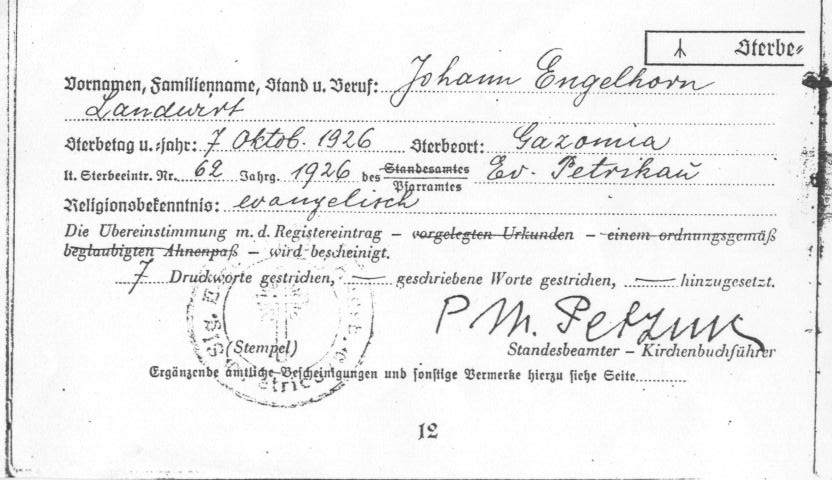 Sterbe-
Vornamen, Familienname, Stand u. Beruf: Johann Engelhorn
Landwirt
Sterbetag u. -jahr: 7 Oktob. 1926 Sterbeort: Gazomia
lt. Sterbeeintr. Nr. 62 Jahrg. 1926 des Standesamtes Ev. Petrikau
Pfarramtes
Religionsbekenntnis: evangelisch
Die Übereinstimmung m. d. Registereintrag – vorgelegten Urkunden – einem ordnungsgemäß
beglaubigten Ahnenpaß – wird bescheinigt.
7 Druckworte gestrichen, — geschriebene Worte gestrichen, — hinzugesetzt.
P M.
(Stempel)
Standesbeamter – Kirchenbuchführer
Ergänzende amtliche Bescheinigungen und sonstige Vermerke hierzu siehe Seite
12